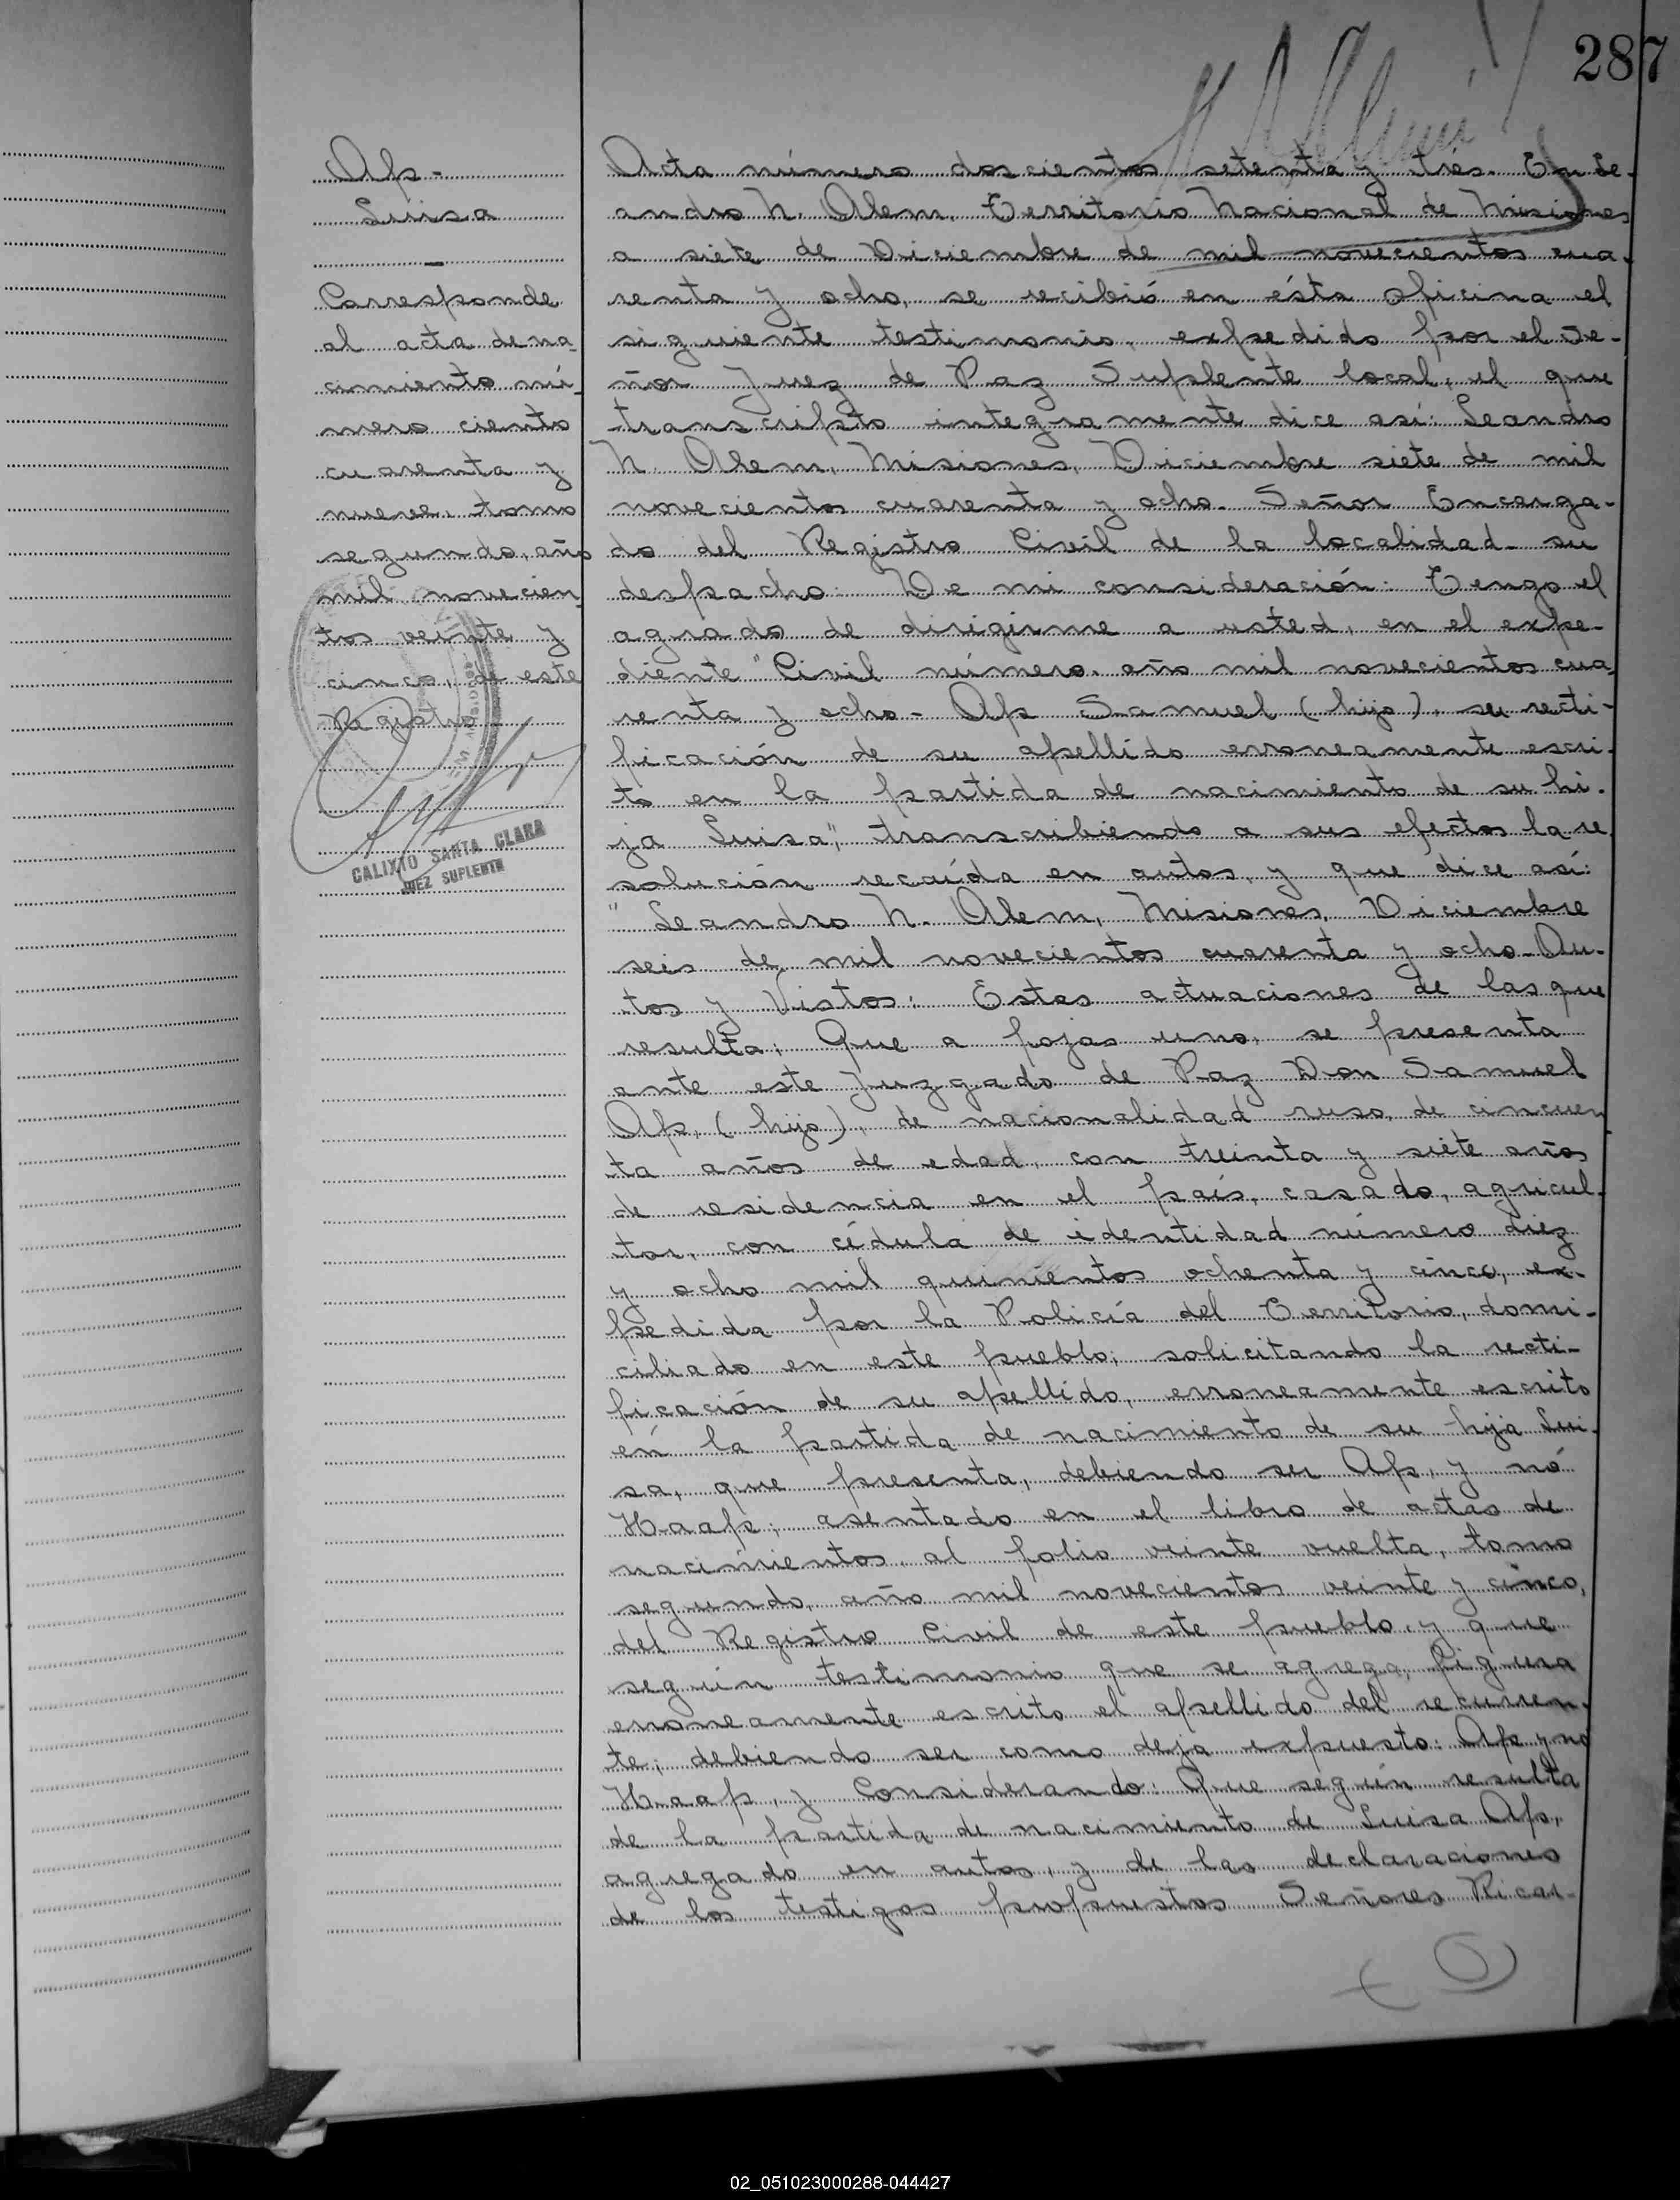 287
Ap-
Luisa
-
Corresponde
al acta de na-
cimiento nú-
mero ciento
cuarenta y
nueve, tomo
segundo, año
mil novecien-
tos veinte y
cinco, de este
Registro
CALIXTO SANTA CLARA
JUEZ SUPLENTE
Acta número doscientos setenta y tres. En Le-
andro N. Alem, Territorio Nacional de Misiones
a siete de Diciembre de mil novecientos cua-
renta y ocho, se recibió en ésta oficina el
siguiente testimonio, expedido por el Se-
ñor Juez de Paz Suplente local, el que
transcripto integramente dice así: Leandro
N. Alem, Misiones, Diciembre siete de mil
novecientos cuarenta y ocho. Señor Encarga-
do del Registro Civil de la localidad - su
despacho: De mi consideración: Tengo el
agrado de dirigirme a usted, en el expe-
diente "Civil número, año mil novecientos cua-
renta y ocho - Ap Samuel (hijo), su recti-
ficación de su apellido erroneamente escri-
to en la partida de nacimiento de su hi-
ja Luisa", transcribiendo a sus efectos la re-
solución recaída en autos, y que dice así:
" Leandro N. Alem, Misiones, Diciembre
seis de mil novecientos cuarenta y ocho - Au-
tos y Vistos: Estas actuaciones de las que
resulta: Que a fojas uno, se presenta
ante este Juzgado de Paz Don Samuel
Ap, (hijo), de nacionalidad ruso, de cincuen-
ta años de edad, con treinta y siete años
de residencia en el país, casado, agricul-
tor, con cédula de identidad número diez
y ocho mil quinientos ochenta y cinco, ex-
pedida por la Policía del Territorio, domi-
ciliado en este pueblo; solicitando la recti-
ficación de su apellido, erroneamente escrito
en la partida de nacimiento de su hija Lui-
sa, que presenta, debiendo ser Ap, y nó
Haap; asentado en el libro de actas de
nacimientos, al folio veinte vuelta, tomo
segundo, año mil novecientos veinte y cinco,
del Registro Civil de este pueblo, y que
según testimonio que se agrega, figura
erroneamente escrito el apellido del recurren-
te; debiendo ser como deja expuesto: Ap y no
Haap, y Considerando: Que según resulta
de la partida de nacimiento de Luisa Ap,
agregado en autos, y de las declaraciones
de los testigos propuestos Señores Ricar-
02_051023000288-044427